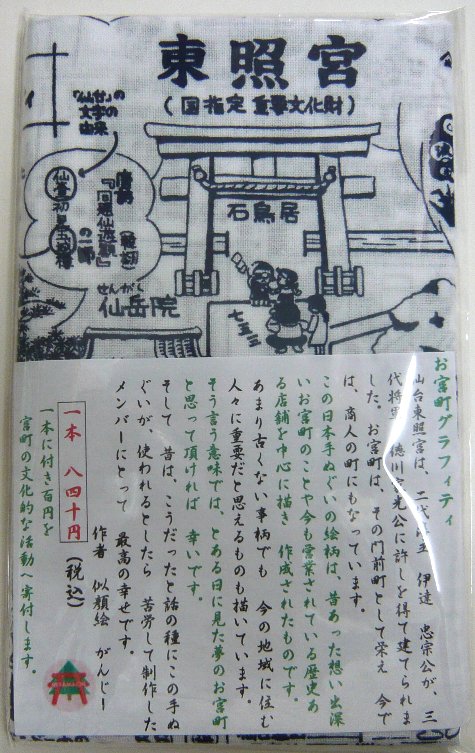 東照宮
(国指定 重要文化財)
「仙台」の
文字の
由来
唐詩
『同題仙遊観』
の一節
仙臺初見五城樓
石鳥居
せんがく
仙岳院
七五三
お宮町グラフィティ
仙台東照宮は、二代藩主 伊達 忠宗公が、三
代将軍 徳川家光公に許しを得て建てられま
した。お宮町は、その門前町として栄え 今で
は、商人の町にもなっています。
この日本手ぬぐいの絵柄は、昔あった想い出深
いお宮町のことや今も営業されている歴史あ
る店舗を中心に描き 作成されたものです。
あまり古くない事柄でも 今の地域に住む
人々に重要だと思えるものも描いています。
そう言う意味では、とある日に見た夢のお宮町
と思って頂ければ 幸いです。
そして 昔は、こうだったと話の種にこの手ぬ
ぐいが、使われるとしたら 苦労して制作した
メンバーにとって 最高の幸せです。
作者 似顔絵 がんじー
一本 八四十円 (税込)
一本に付き百円を
宮町の文化的な活動へ寄付します。